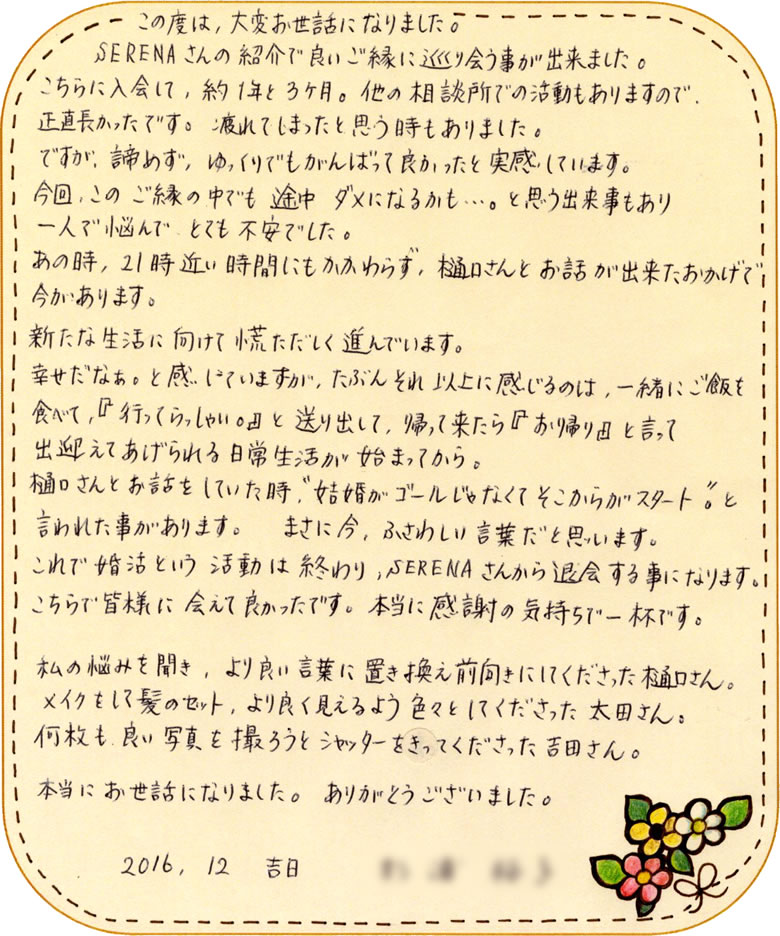 この度は,大変お世話になりました。
SERENAさんの紹介で良いご縁に巡り会う事が出来ました。
こちらに入会して,約1年と3ヶ月。他の相談所での活動もありますので、
正直長かったです。疲れてしまったと思う時もありました。
ですが、諦めず,ゆっくりでもがんばって良かったと実感しています。
今回、このご縁の中でも途中ダメになるかも…。と思う出来事もあり
一人で悩んで、とても不安でした。
あの時,21時近い時間にもかかわらず,樋口さんとお話が出来たおかげで
今があります。
新たな生活に向けて慌ただしく進んでいます。
幸せだなぁ。と感じていますが,たぶんそれ以上に感じるのは,一緒にご飯を
食べて,『行ってらっしゃい。』と送り出して,帰って来たら『お帰り』と言って
出迎えてあげられる日常生活が始まってから。
樋口さんとお話をしていた時,“結婚がゴールじゃなくてそこからがスタート”。と
言われた事があります。まさに今,ふさわしい言葉だと思います。
これで婚活という活動は終わり,SERENAさんから退会する事になります。
こちらで皆様に会えて良かったです。本当に感謝の気持ちで一杯です。
私の悩みを聞き,より良い言葉に置き換え前向きにしてくださった樋口さん。
メイクをして髪のセット,より良く見えるよう色々としてくださった太田さん。
何枚も良い写真を撮ろうとシャッターをきってくださった吉田さん。
本当にお世話になりました。ありがとうございました。
2016,12 吉日